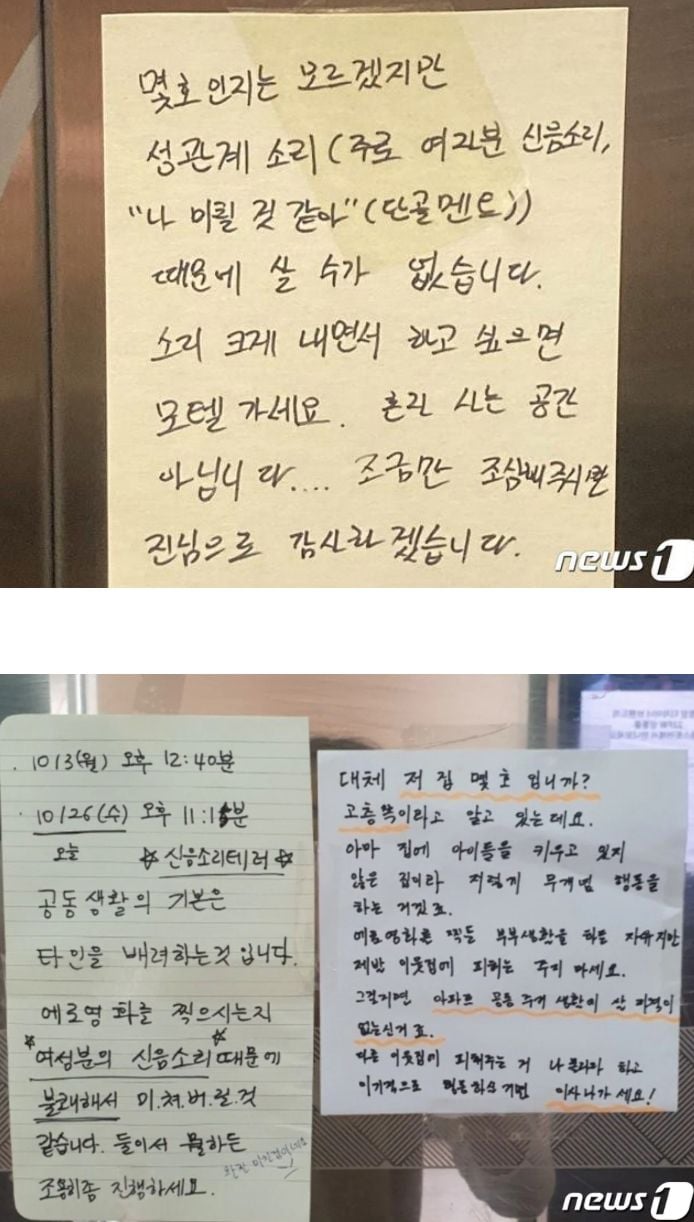 몇호인지는 모르겠지만
성관계 소리 (주로 여자분 신음소리,
"나 미칠 것 같아" (단골멘트))
때문에 살 수가 없습니다.
소리 크게 내면서 하고 싶으면
모텔 가세요. 혼자 사는 공간
아닙니다.... 조금만 조심해주시면
진심으로 감사하겠습니다.
news1
10/3(월) 오후 12:40분
10/26(수) 오후 11:15분
오늘 ☆신음소리테러☆
공동생활의 기본은
타인을 배려하는것 입니다.
에로영화를 찍으시는지
*여성분의 신음소리* 때문에
불쾌해서 미.쳐.버.릴.것
같습니다. 둘이서 뭘하든
조용히좀 진행하세요.
대체 저 집 몇 호 입니까?
고층 쪽이라고 알고 있는데요.
아마 집에 아이들을 키우고 있지
않은 집이라 저렇게 무개념 행동을
하는 거겠죠.
에로영화를 찍든 부부생활을 하든 자유지만
제발 이웃집에 피해는 주지 마세요.
그럴거면 아파트 공동 주거 생활이 산 자격이
없는신거죠.
다른 이웃집이 피해주는 거 나 몰라라 하고
이기적으로 행동하실거면 이사나가세요!
news1